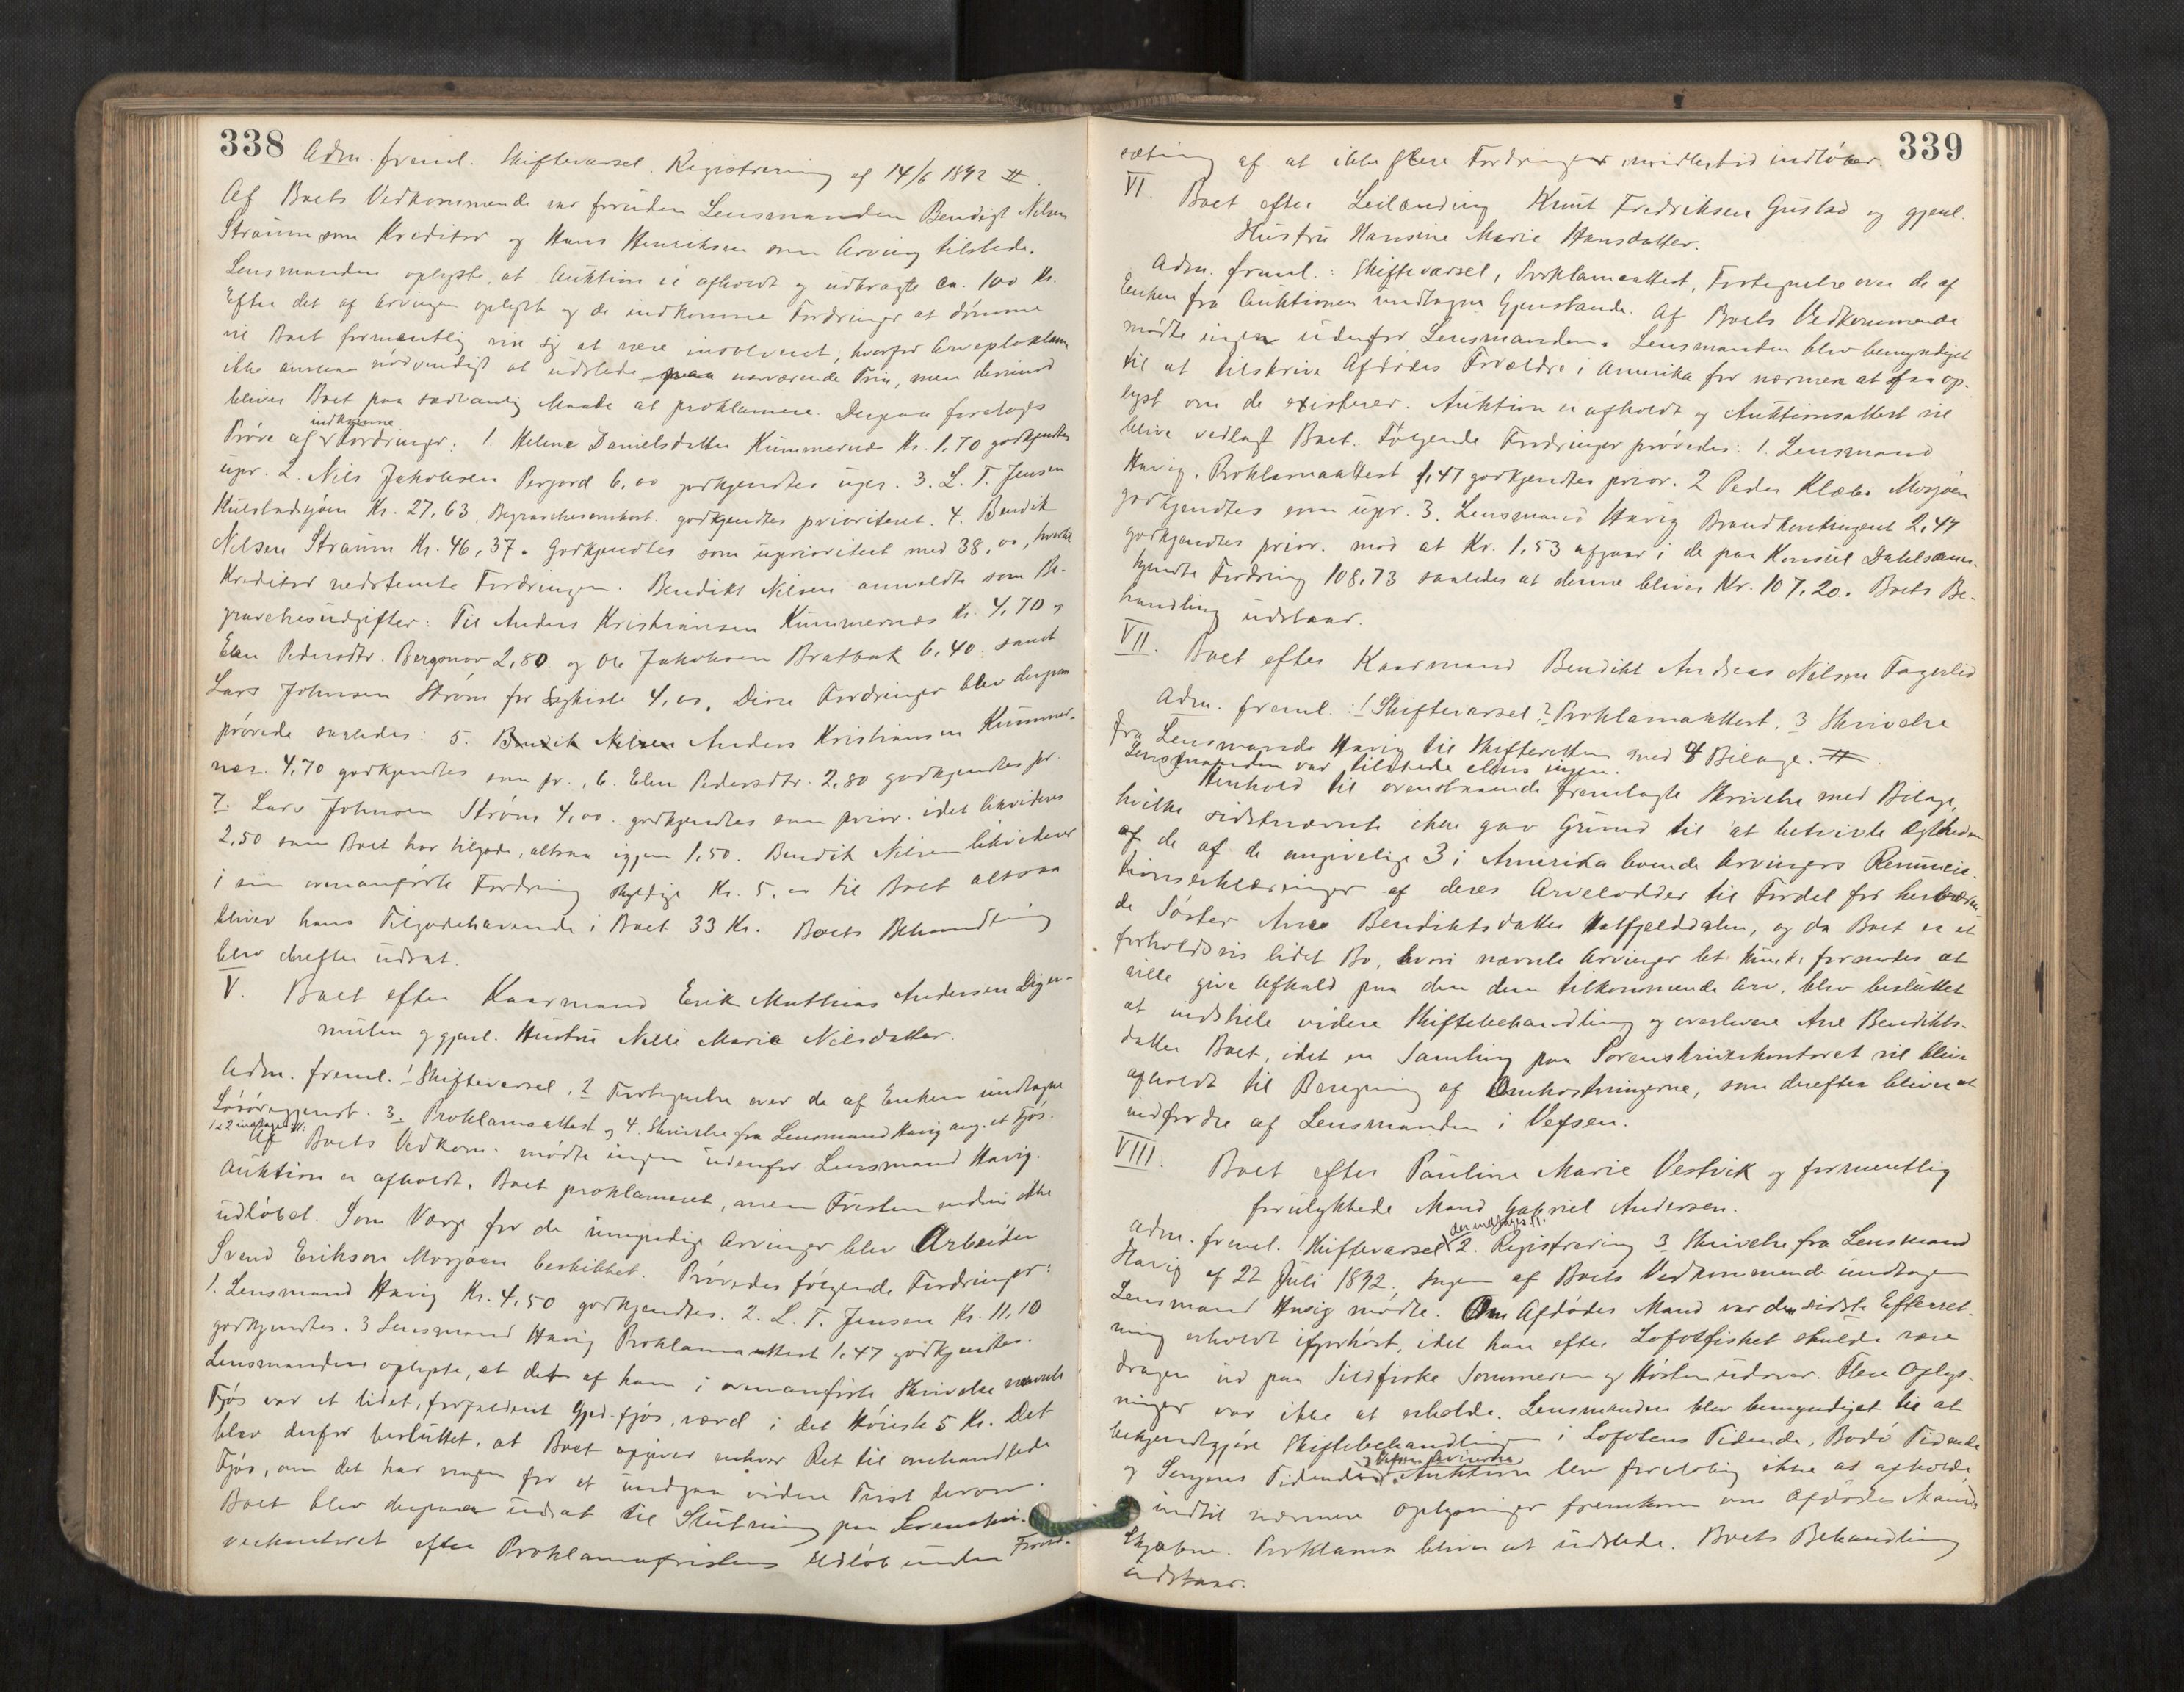 338
Adm. freml. Skiftevarsel. Registrering af 14/6 1892 #.
Af Boets Vedkommende var foruden Lensmanden Bendigt Nilsen
Straum som Kreditor og Hans Henriksen som Arving tilstede.
Lensmanden oplyste, at Auktion er afholdt og udbragte ca. 100 Kr.
Efter det af Arvingen oplyste og de indkomne Fordringer at dømme
vil Boet formentlig vise sig at være insolvent, hvorfor Arveproklama
ikke ansees nødvendigt at udstede paa nærværende Trin, men derimod
bliver Boet paa sædvanlig Maade at proklamere. Derpaa foretoges
indkomne
Prøve af Fordringer: 1. Helene Danielsdatter Kummernes Kr. 1,70 godkjendtes
upr. 2. Nils Jakobsen Perjord 6,00 godkjendtes upr. 3. L. T. Jensen
Kulstadsjøen Kr. 27,63. Begravelsesomkost. godkjendtes prioriteret. 4. Bendik
Nilsen Straum Kr. 46,37. Godkjendtes som uprioritert med 38,00, hvortil
Kreditor nedstemte Fordringen. Bendikt Nilsen anmeldte som Be-
gravelsesudgifter: Til Anders Kristiansen Kummernes Kr. 4,70,
Elen Pedersdtr. Bergsnov 2,80 og Ole Jakobsen Bratbak 6,40 samt
Lars Johnsen Strøm for Ligkiste 4,00. Disse Fordringer blev derpaa
prøvede saaledes: 5. Bendik Nilsen Anders Kristiansen Kummer-
nes. 4,70 godkjendtes som pr., 6. Elen Pedersdtr. 2,80 godkjendtes pr.
7. Lars Johnsen Strøm 4,00. godkjendtes som prior. idet likvideres
2,50 som Boet har tilgode, altsaa igjen 1,50. Bendik Nilsen likviderer
i sin ovenanførte Fordring skyldige Kr. 5,00 til Boet altsaa
bliver hans Tilgodehavende i Boet 33 Kr. Boets Behandling
blev derefter udsat.
V. Boet efter Kaarmand Erik Mathias Andersen Diger-
mulen og gjenl. Hustru Nelli Marie Nilsdatter.
Adm. freml. 1 Skiftevarsel, 2 Fortegnelse over de af Enken undtagne
Løsøregjenst. 3. Proklamaattest og 4. Skrivelse fra Lensmand Havig ang. et Fjøs.
1 & 2 indtages #:
Af Boets Vedkom. mødte ingen udenfor Lensmand Havig.
Auktion er afholdt. Boet proklameret, men Fristen endnu ikke
udløbet. Som Værge for de umyndige Arvinger blev Arbeider
Svend Erikson Mosjøen beskikket. Prøvedes følgende Fordringer:
1. Lensmand Havig Kr. 4,50 godkjendtes. 2. L. T. Jensen Kr. 11,10
godkjendtes. 3 Lensmand Havig Proklamaattest 1,47 godkjendtes.
Lensmanden oplyste, at det af ham i ovenanførte Skrivelse nævnte
Fjøs var et lidet, forfaldent Gjed-fjøs, værd i det Høieste 5 Kr. Det
blev derfor besluttet, at Boet opgiver enhver Ret til omhandlede
Fjøs, om det har nogen for at undgaa videre Tvist derom.
Boet blev derpaa udsat til Slutning paa Sorenskri-
verkontoret efter Proklamafristens Udløb under Forud-
339
sætning af at ikke flere Fordringer imidlertid indløber.
VI. Boet efter Leilænding Knut Fredriksen Grustad og gjenl.
Hustru Hansine Marie Hansdatter.
Adm. freml.: Skiftevarsel, Proklamaattest, Fortegnelse over de af
Enken fra Auktionen undtagne Gjenstande. Af Boets Vedkommende
mødte ingen udenfor Lensmanden. Lensmanden blev bemyndiget
til at tilskrive Afdødes Forældre i Amerika for nærmere at faa op-
lyst om de existerer. Auktion er afholdt og Auktionsattest vil
blive vedlagt Boet. Følgende Fordringer prøvedes: 1. Lensmand
Havig. Proklamaattest 1,47 godkjendtes prior. 2 Peder Klæbo Mosjøen
godkjendtes som upr. 3. Lensmand Havig Brandkontingent 2,47
godkjendtes prior. mod at Kr. 1,53 afgaar i de paa Konsul Dahls aner-
kjendte Fordring 108,73 saaledes at denne bliver Kr. 107,20. Boets Be-
handling udstaar.
VII. Boet efter Kaarmand Bendikt Andreas Nilsen Fagerlid
Adm. freml.: 1 Skiftevarsel 2 Proklamaattest. 3 Skrivelse
fra Lensmands Havig til Skifteretten med 4 Bilage. #
Lensmanden var tilstede ellers ingen.
Henhold til ovenstaaende fremlagte Skrivelse med Bilage,
hvilke sidstnævnte ikke gav Grund til at betvivle Ægtheden
af de af de angivelige 3 i Amerika boende Arvingers Renuncia-
tionserklæringer af deres Arvelodder til Fordel for herværen-
de Søster Ane Bendiktsdatter Hatfjelddalen, og da Boet er et
forholdsvis lidet Bo, hvori nævnte Arvinger let kunde formodes at
ville give Afkald paa den dem tilkommende Arv, blev besluttet
at indstille videre Skiftebehandling og overlevere Ane Bendikts-
datter Boet, idet en Samling paa Sorenskriverkontoret vil blive
afholdt til Beregning af Omkostningerne, som derefter bliver at
indfordre af Lensmanden i Vefsen.
VIII. Boet efter Pauline Marie Vestvik og formentlig
forulykkede Mand Gabriel Andersen.
der indtages #.
Adm. freml. 1 Skiftevarsel 2. Registrering 3 Skrivelse fra Lensmand
Havig af 22 Juli 1892. Ingen af Boets Vedkommende undtagen
Lensmand Havig mødte. Om Afdødes Mand var den sidste Efterret-
ning erholdt ifjorhøst, idet han efter Lofotfisket skulde være
dragen ud paa Sildfiske Sommeren og Høsten udover. Flere Oplys-
ninger var ikke at erholde. Lensmanden blev bemyndiget til at
bekjendtgjøre Skiftebehandlingen i Lofotens Tidende, Bodø Tidende
og Senjens Tidende. Auktion blev foreløbig ikke at afholde
indtil nærmere Oplysninger fremkom om Afdødes Mands
Skjæbne. Proklama bliver at udstede. Boets Behandling
udstaar.